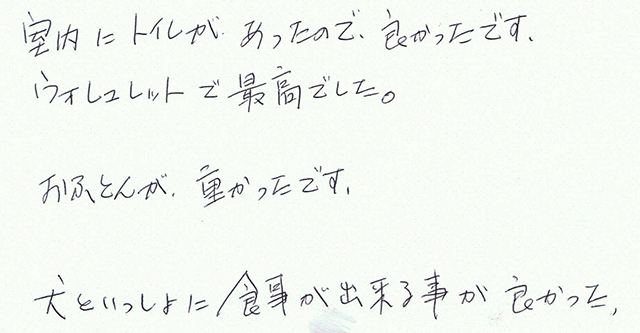 室内にトイレが、あったので、良かったです、
ウォシュレットで最高でした。
おふとんが、重かったです、
犬といっしょに食事が出来る事が良かった、